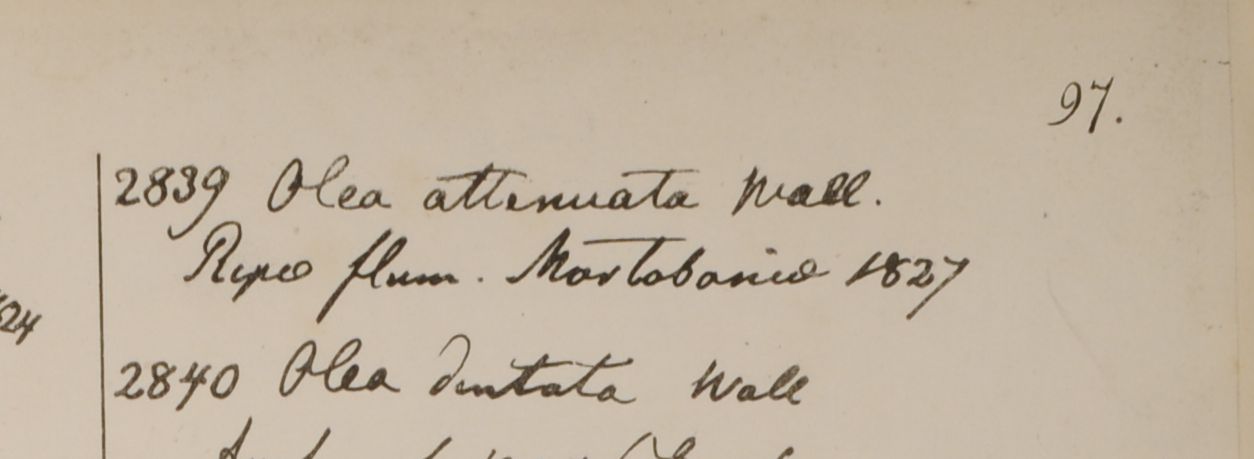 97.
2839 Olea attenuata Wall.
Ripæ flum. Martabaniæ 1827
24
2840 Olea dentata Wall